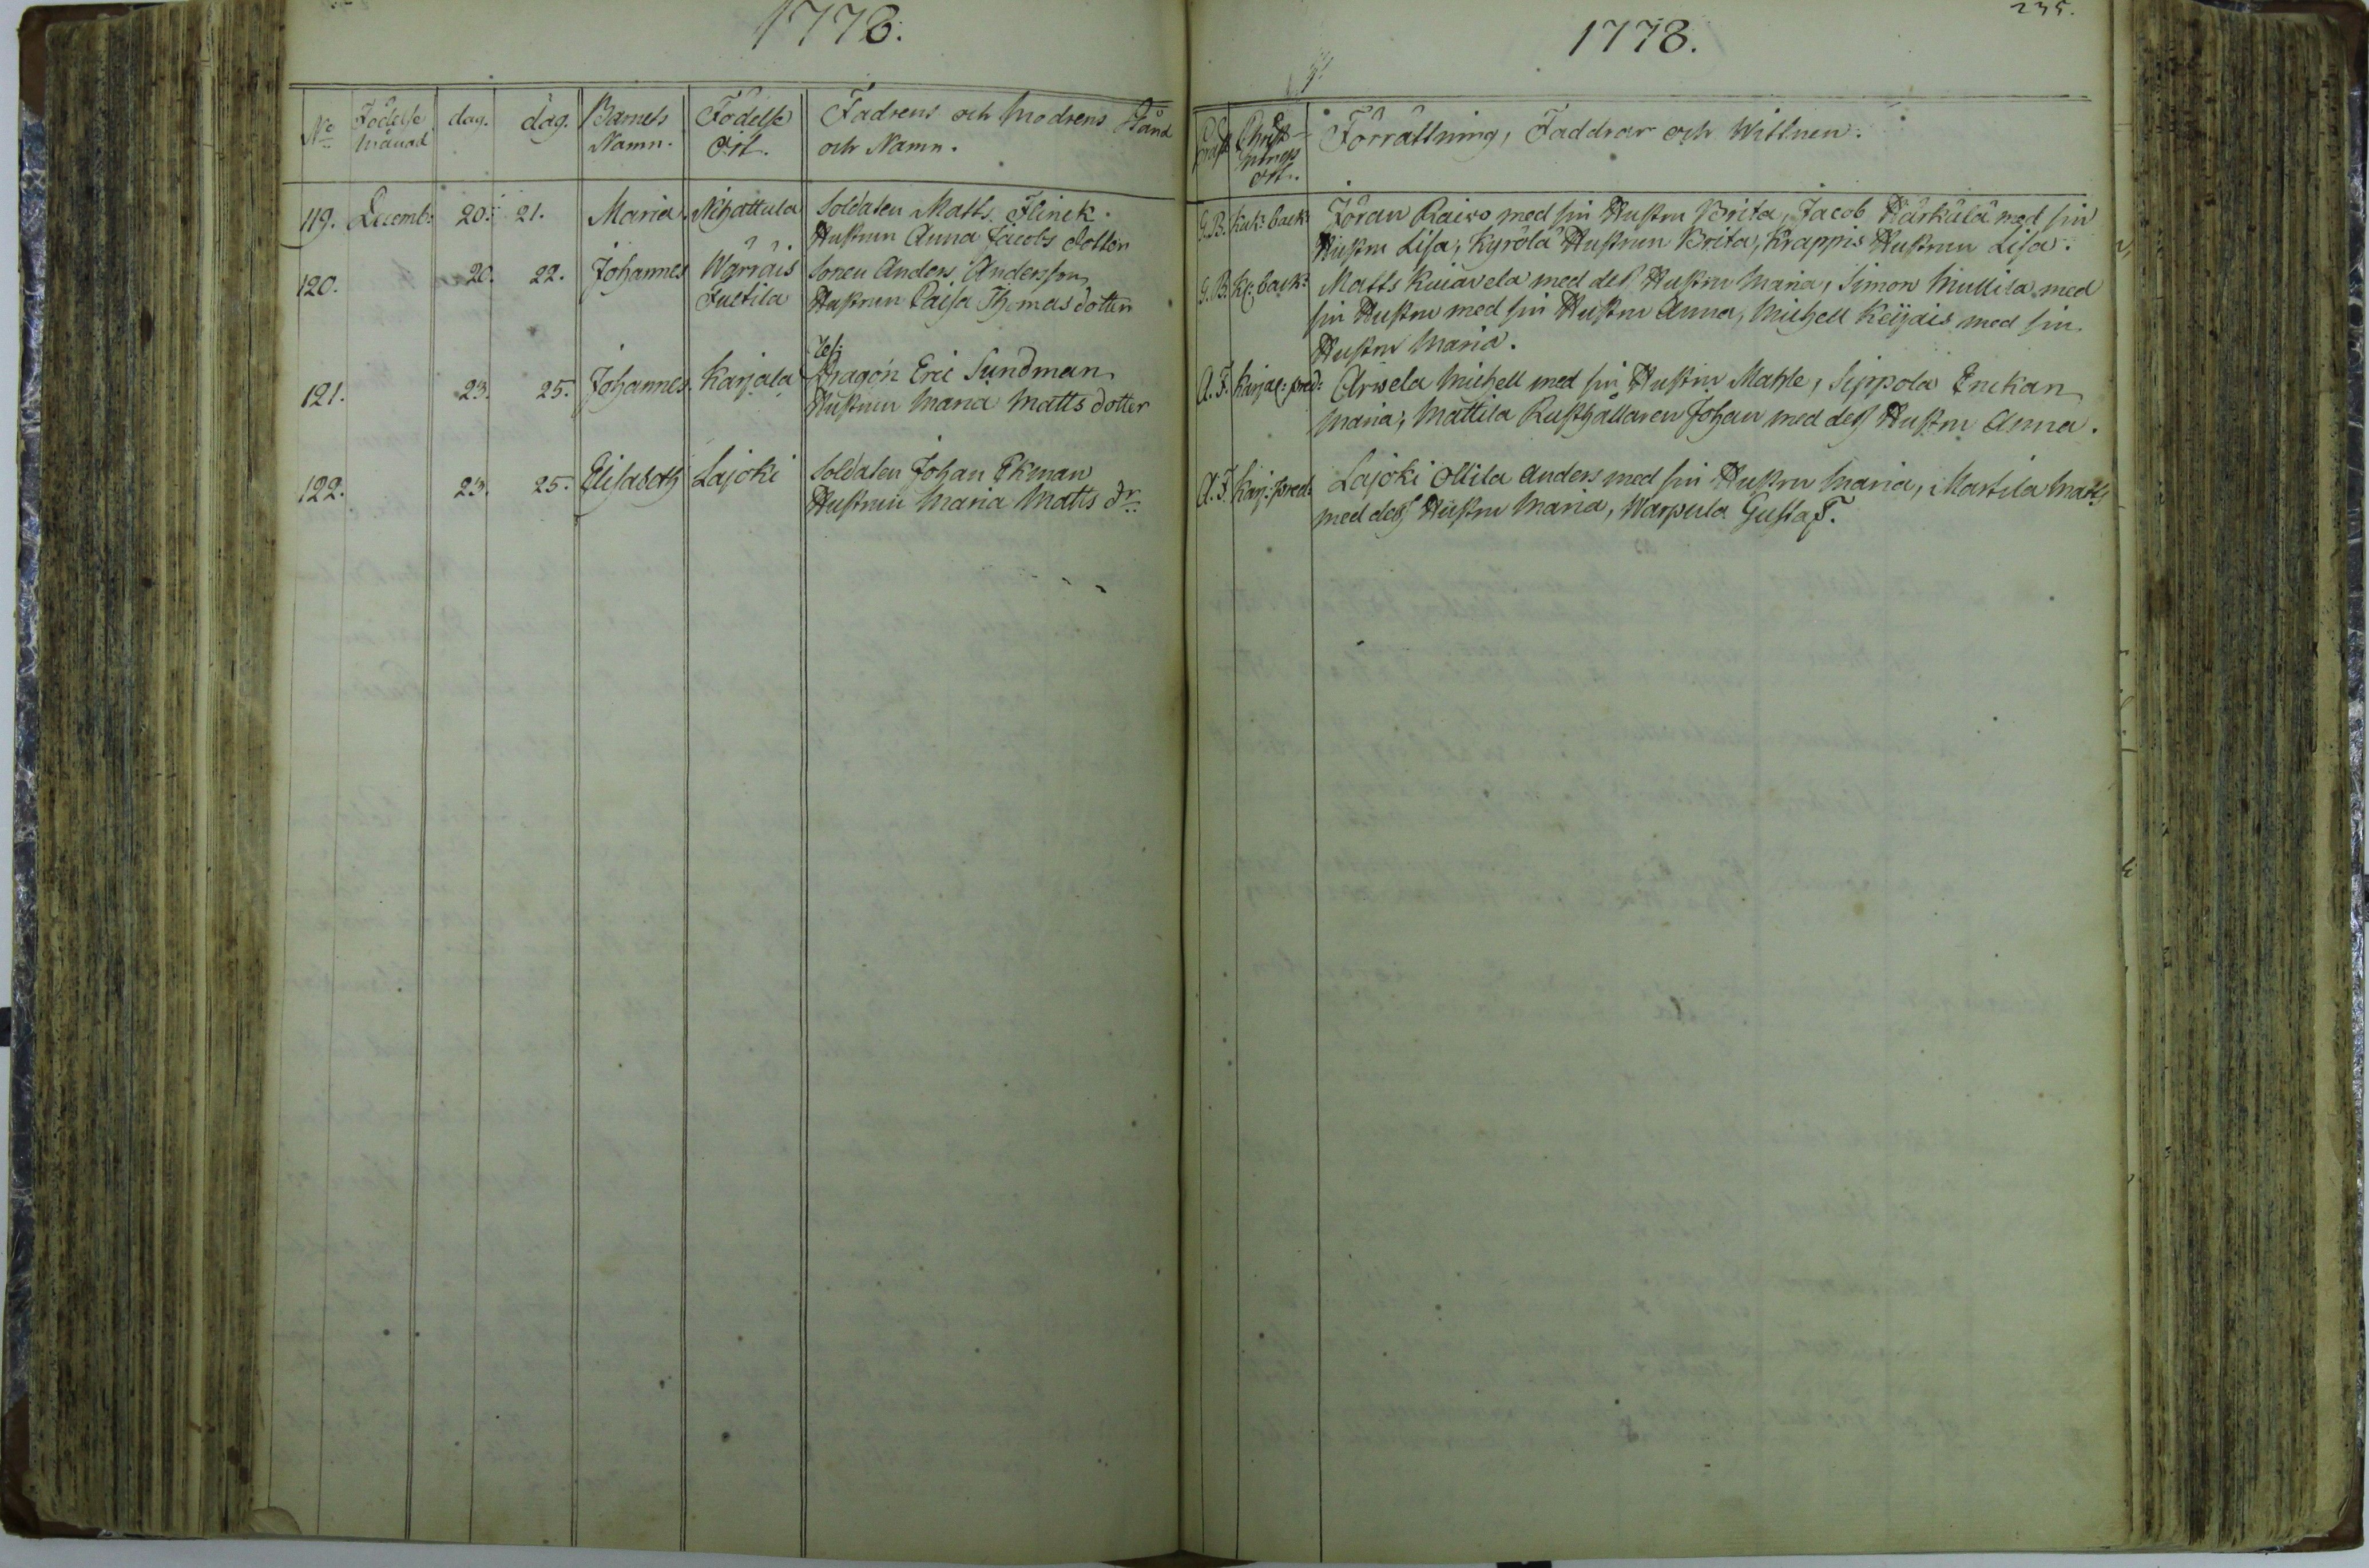 1778.
No Födelse månad dag. dag. Barnets Namn. Födelse Ort. Fadrens och Modrens Stånd och Namn.
119. Decemb: 20. 21. Maria Nihattula Soldaten Matts Flinck.
Hustrun Anna Jacobs dotter
120. 20. 22. Johannes Warrais Sonen Anders Andersson
Juttila Hustrun Caisa Thomas dotter
Res:
121. 23. 25. Johannes Karjala Dragon Eric Sundman
Hustrun Maria Matts dotter
122. 23. 25. Elisabeth Lajoki Soldaten Johan Ekman
Hustrun Maria Matts dr
235.
1778.
Christnings Ort. Förrättning, Faddrar och Wittnen.
G.B. Kuk: back: Jöran Raivo med sin Hustru Brita, Jacob Härkälä med sin
Hustru Lisa, Kyrölä Hustrun Brita, Krappis Hustrun Lisa.
G.B. back: Matts med dess Hustru Maria, Simon Mullila med
sin Hustru med sin Hustru Anna, Michell Keijais med sin
Hustru Maria.
A.F. Karjal: pred: Arwela Michell med sin Hustru Mahle, Seppola Enckan
Maria, Mattila Rusthållaren Johan med dess Hustru Anna.
A.F. Karj: pred: Lajoki Ollila Anders med sin Hustru Maria, Martila Matts
med dess Hustru Maria, Warpula Gustaf.